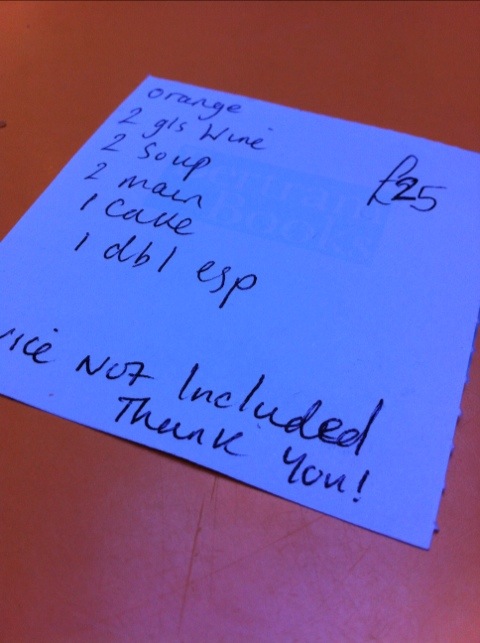 orange
2 gls Wine
2 Soup
2 main
1 cake
1 dbl esp
£25
vice NOT Included
Thank You!
bertrams
books